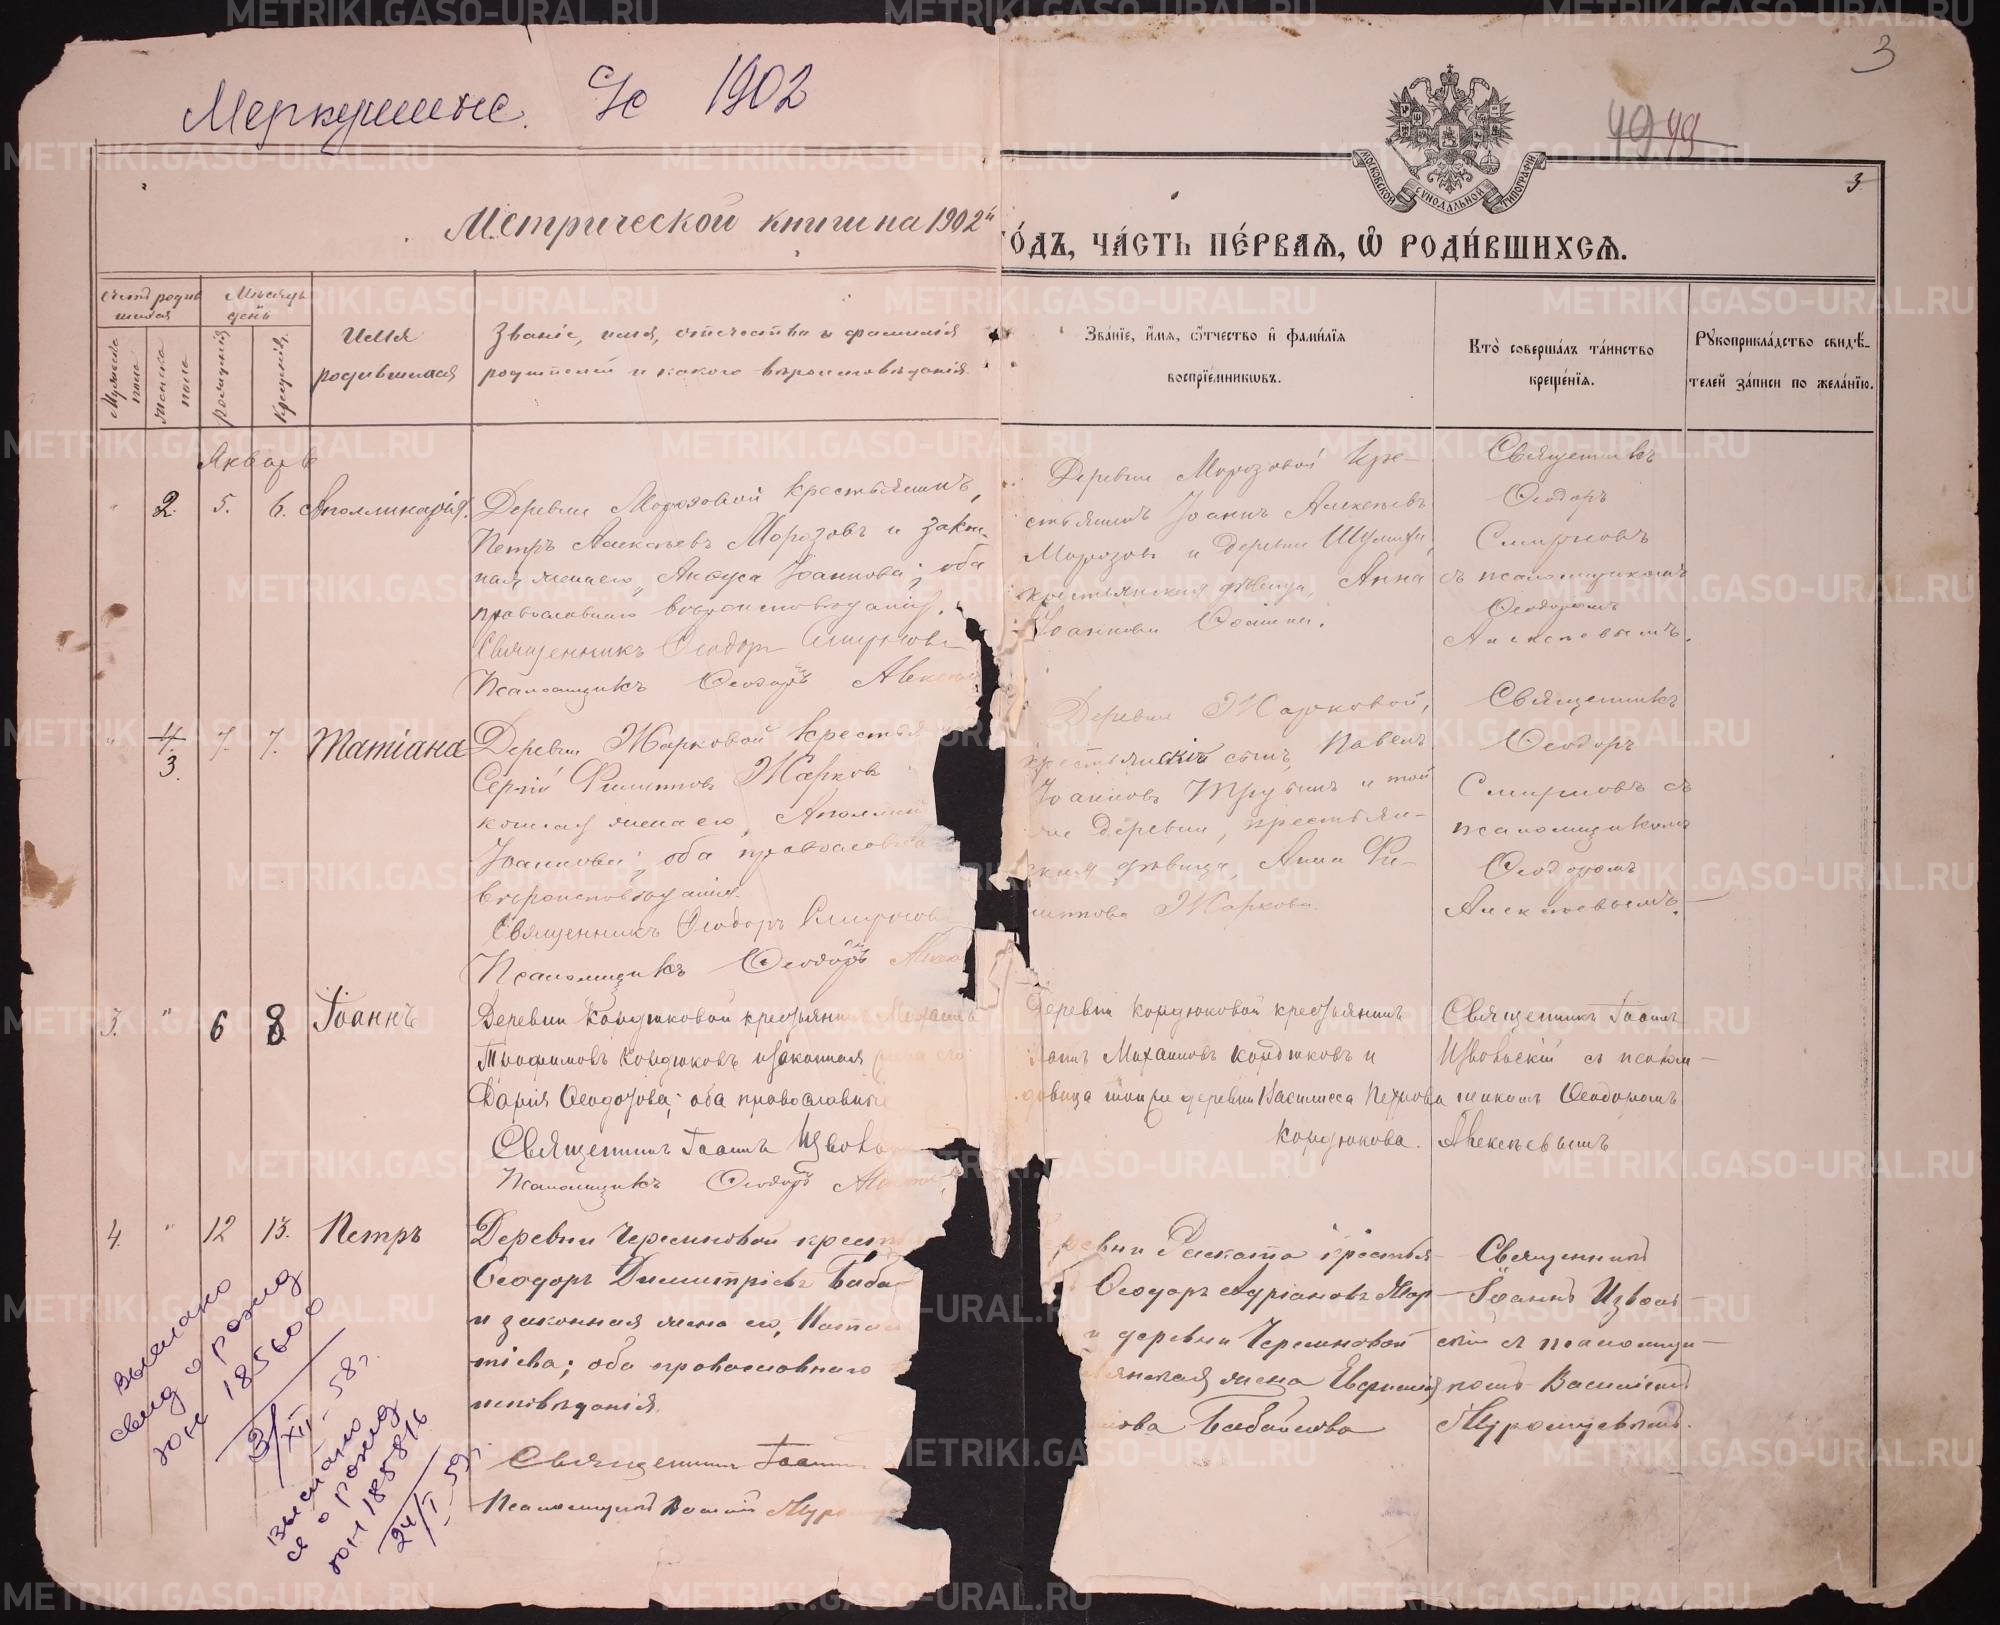 Меркушинс. Ч/с 1902
3
49 49
МОСКОВСКОЙ СѴНОДАЛЬНОЙ ТИПОГРАФІИ
3
Метрической книги на 1902й
го́дъ, ча́сть пе́рваѧ, ѡ҆ роди́вшихсѧ.
Счетъ родившихся
Мужеска пола
Женска пола
Мѣсяцъ день
рожденія
крещенія.
Имя родившихся
Званіе, имя, отчество и фамилія
родителей и какого вѣроисповѣданія.
Зва́нїе, и҆́мѧ, ѻ҆́тчество и҆ фами́лїѧ
воспрїе́мникѡвъ.
Кто̀ соверша́лъ та́инство
креще́нїѧ.
Рꙋкоприкла́дство свидѣ́-
телей за́писи по жела́нїю.
Январь
" 2. 5. 6. Аполлинарія.
Деревни Морозовой крестьянинъ,
Петръ Алексѣевъ Морозовъ и закон-
ная жена его, Іоаннова; оба
православнаго вѣроисповѣданія.
Священникъ Ѳеодоръ Смирновъ
Псаломщикъ Ѳеодоръ Алексѣе
Деревни Морозовой кре-
стьянинъ Іоаннъ Алексѣевъ
Морозовъ и деревни
крестьянская дѣвица, Анна
Іоаннова
Священникъ
Ѳеодоръ
Смирновъ
съ псаломщикомъ
Ѳеодоромъ
Алексѣевымъ.
" 4. 3. 7. 7. Татіана
Деревни Жарковой крестья
Сергій Филипповъ Жарковъ
конная жена его,
Іоаннова; оба православна
вѣроисповѣданія.
Священникъ Ѳеодоръ Смирновъ
Псаломщикъ Ѳеодоръ Алек
Деревни Жарковой,
крестьянскій сынъ, Павелъ
Іоанновъ Трубинъ и той
же деревни, крестьян-
ская дѣвица, Анна Фи-
липпова Жаркова.
Священникъ
Ѳеодоръ
Смирновъ съ
псаломщикомъ
Ѳеодоромъ
Алексѣевымъ.
3. " 6 8 Іоаннъ
Деревни Кондюковой крестьянинъ Михаилъ
Трофимовъ Кондюковъ и законная жена его
Дарія Ѳеодотова; оба православные
Священникъ Іоаннъ Изволь
Псаломщикъ Ѳеодоръ
Деревни Кондюковой крестьянинъ
Михаиловъ Кондюковъ и
дѣвица той же деревни Василисса Петрова
Кондюкова.
Священникъ Іоаннъ
Извольскій съ псалом-
щикомъ Ѳеодоромъ
Алексѣевымъ
4. " 12 13. Петръ
Деревни Черемновой крестья
Ѳеодоръ Димитріевъ Баба
и законная жена его,
тіева; оба православнаго
исповѣданія.
Священникъ Іоаннъ
Псаломщикъ Василій Муром
ревни Раската крестья-
Ѳеодоръ Адріановъ Мар-
и деревни Черемновой
янская жена
Священникъ
Іоаннъ Изволь-
скій съ псаломщи-
комъ Василіемъ
Муромцевымъ.
Выслано
свид о рожд
ЮН 185600
31/XII-58г.
Выслано
св о рожд
ЮН 1858816
24/I-59г.